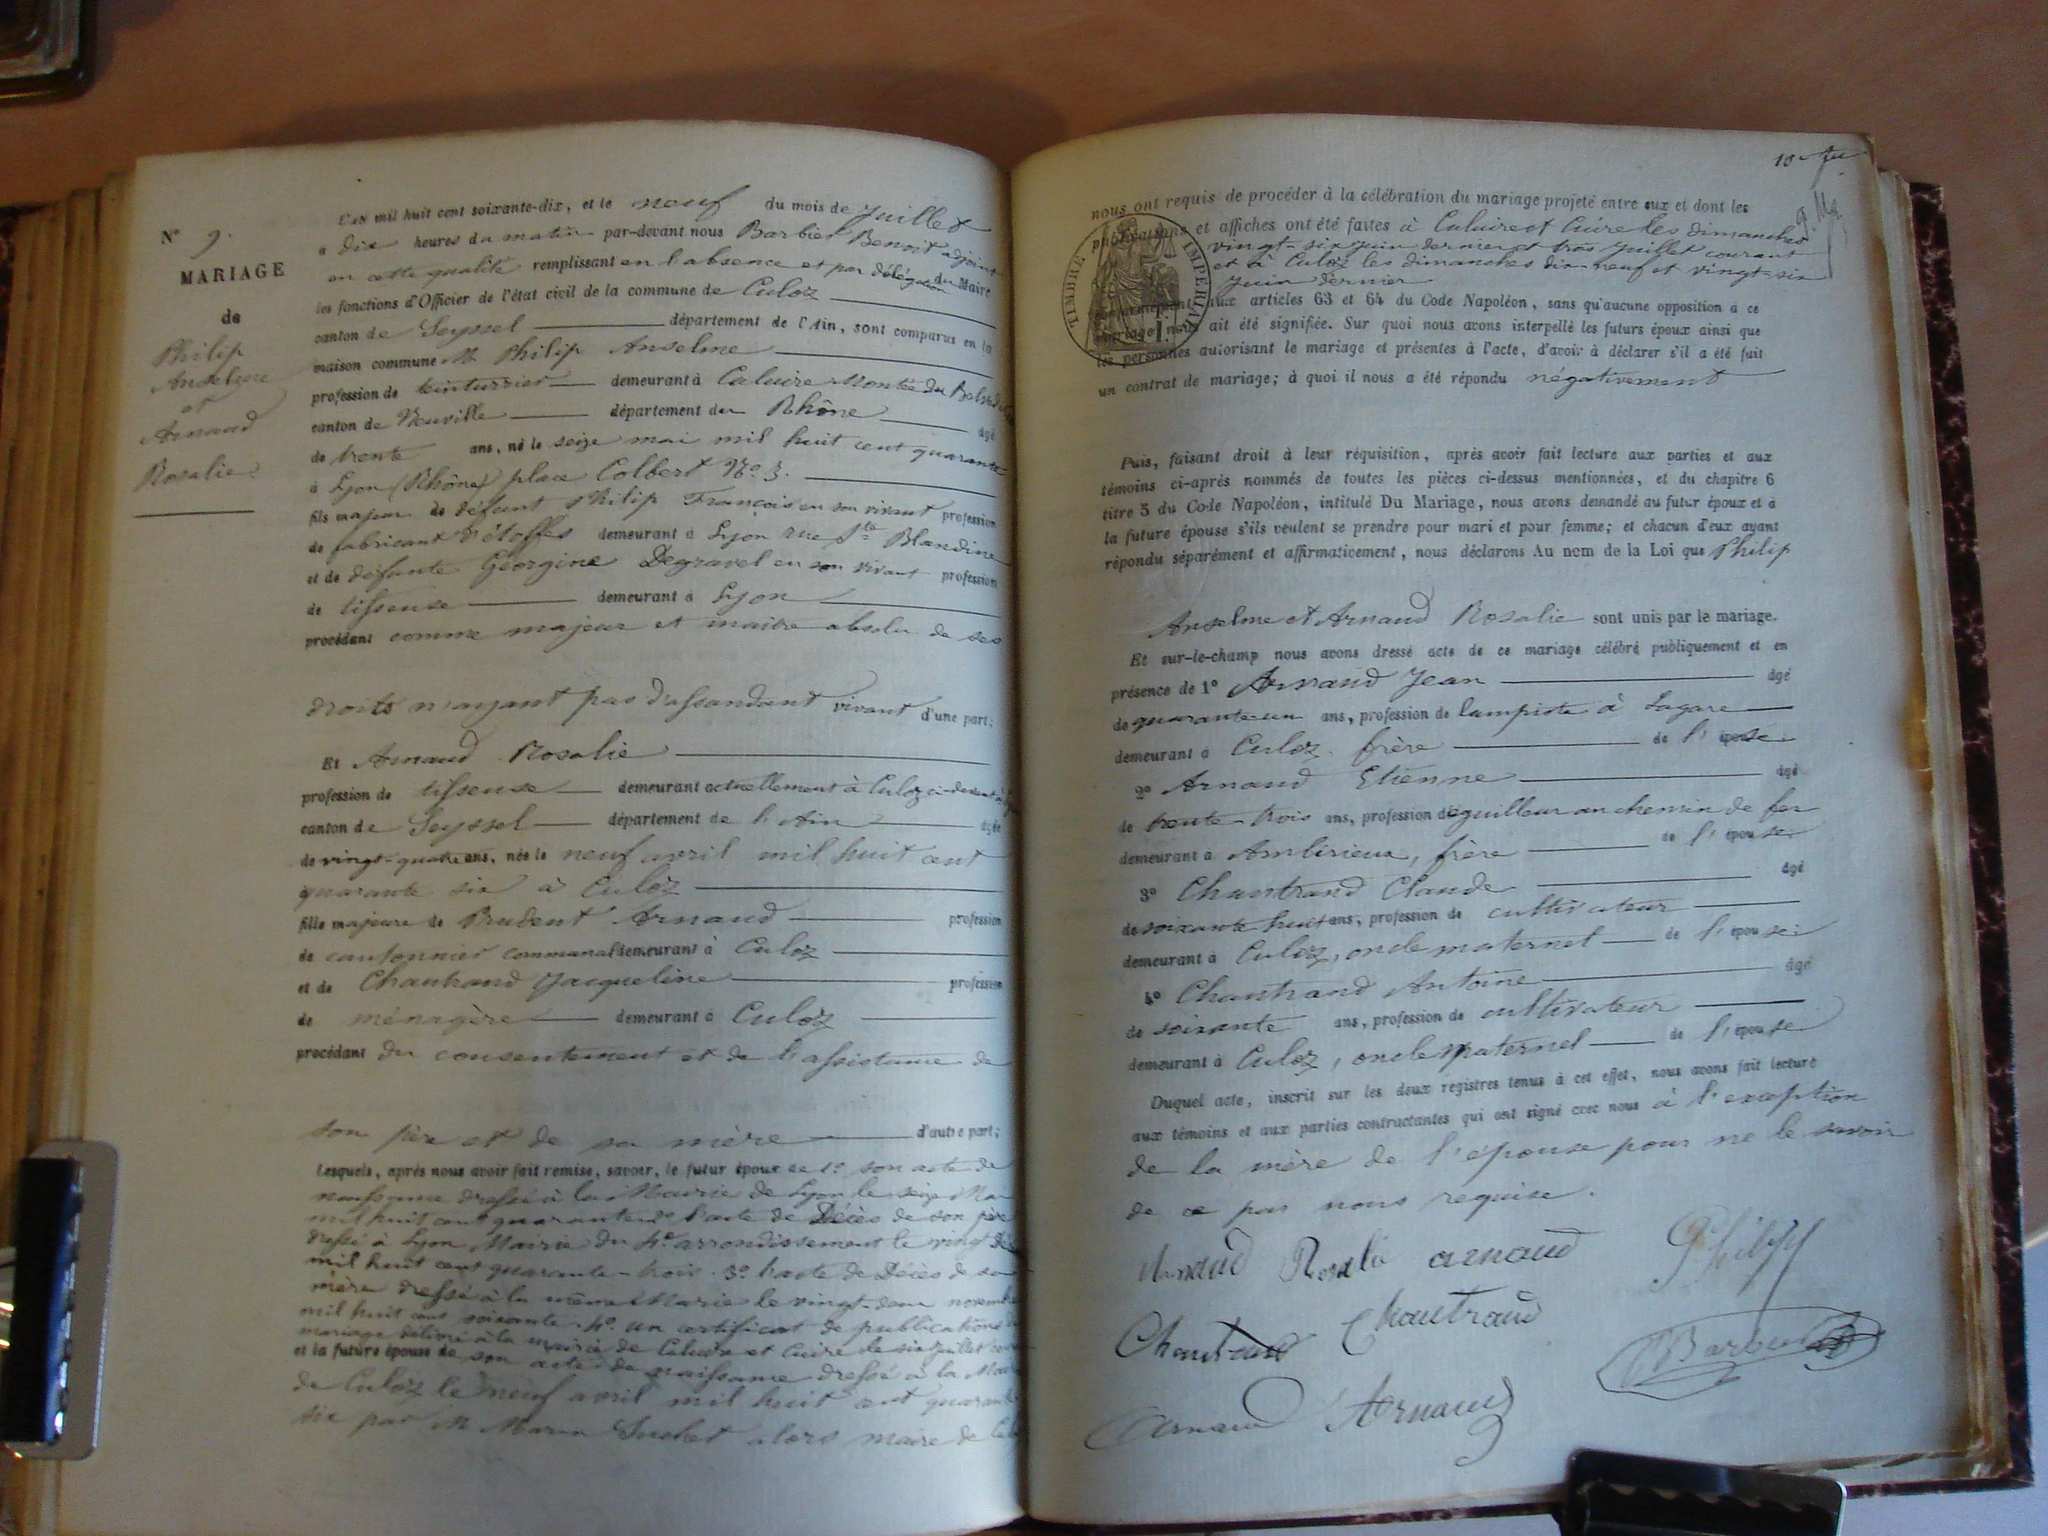 N° 9.
MARIAGE
de
Philip
Anselme
et
Arnaud
Rosalie
L'AN mil huit cent soixante-dix, et le neuf du mois de Juillet
à dix heures du matin par-devant nous Barbier Benoit adjoint
en cette qualité remplissant en l'absence et par délégation du Maire
les fonctions d'Officier de l'état civil de la commune de Culoz
canton de Seyssel département de l'Ain, sont comparus en la
maison commune M. Philip Anselme
profession de teinturier demeurant à Caluire Montée du
canton de Neuville département du Rhône âgé
de trente ans, né le seize mai mil huit cent quarante
à Lyon (Rhône) place Colbert N° 3.
fils majeur de défunt Philip François en son vivant profession
de fabricant d'étoffes demeurant à Lyon rue Ste Blandine
et de défunte Georgine Degravel en son vivant profession
de tisseuse demeurant à Lyon
procédant comme majeur et maitre absolu de ses
droits n'ayant pas d'assandant vivant d'une part;
Et Arnaud Rosalie
profession de tisseuse demeurant actuellement à Culoz ci-devant à
canton de Seyssel département de l'Ain âgée
de vingt-quatre ans, née le neuf avril mil huit cent
quarante six à Culoz
fille majeure de Prudent Arnaud profession
de cantonnier communal demeurant à Culoz
et de Chantrand Jacqueline profession
de ménagère demeurant à Culoz
procédant du consentement et de l'assistance de
son père et de sa mère d'autre part;
Lesquels, après nous avoir fait remise, savoir, le futur époux de 1° son acte de
naissance dressé à la Mairie de Lyon le seize Mai
mil huit cent quarante 2° l'acte de Décès de son père
dressé à Lyon Mairie du 4e arrondissement le vingt
mil huit cent quarante-trois. 3° l'acte de Décès de sa
mère dressé à la même Mairie le vingt-deux novembre
mil huit cent soixante. 4° un certificat de publications de
mariage délivré à la mairie de Caluire et Cuire le six Juillet
et la future épouse de son acte de naissance dressé à la Mairie
de Culoz le neuf avril mil huit cent quarante
six par M. Marin Suchet alors maire de
10 Ju
nous ont requis de procéder à la célébration du mariage projeté entre eux et dont les
publications et affiches ont été faites à Caluire et Cuire les dimanches
vingt-six juin dernier et trois Juillet courant
et à Culoz les dimanches dix-neuf et vingt-six
Juin dernier
conformément aux articles 63 et 64 du Code Napoléon, sans qu'aucune opposition à ce
mariage nous ait été signifiée. Sur quoi nous avons interpellé les futurs époux ainsi que
les personnes autorisant le mariage et présentes à l'acte, d'avoir à déclarer s'il a été fait
un contrat de mariage; à quoi il nous a été répondu négativement
TIMBRE IMPERIAL
Puis, faisant droit à leur réquisition, après avoir fait lecture aux parties et aux
témoins ci-après nommés de toutes les pièces ci-dessus mentionnées, et du chapitre 6
titre 5 du Code Napoléon, intitulé Du Mariage, nous avons demandé au futur époux et à
la future épouse s'ils veulent se prendre pour mari et pour femme; et chacun d'eux ayant
répondu séparément et affirmativement, nous déclarons Au nom de la Loi que Philip
Anselme et Arnaud Rosalie sont unis par le mariage.
Et sur-le-champ nous avons dressé acte de ce mariage célébré publiquement et en
présence de 1° Arnaud Jean âgé
de quarante-un ans, profession de lampiste à Lagare
demeurant à Culoz. frère de l'épouse
2° Arnaud Etienne âgé
de trente-trois ans, profession d'éguilleur au chemin de fer
demeurant à Ambérieux, frère de l'épouse
3° Chantrand Claude âgé
de soixante huit ans, profession de cultivateur
demeurant à Culoz, oncle maternel de l'épouse
4° Chantrand Antoine âgé
de soixante ans, profession de cultivateur
demeurant à Culoz, oncle maternel de l'épouse
Duquel acte, inscrit sur les deux registres tenus à cet effet, nous avons fait lecture
aux témoins et aux parties contractantes qui ont signé avec nous à l'exception
de la mère de l'épouse pour ne le savoir
de ce par nous requise.
Arnaud Rosalie arnaud Philip
Chantrand Chantrand Barbier
Arnaud Arnaud